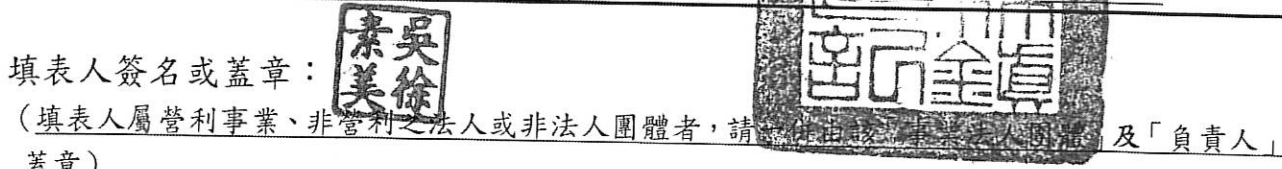 填表人簽名或蓋章：
吳徐
素美
（填表人屬營利事業、非營利之法人或非法人團體者，請併由該 事業法人團體」及「負責人」
蓋章）